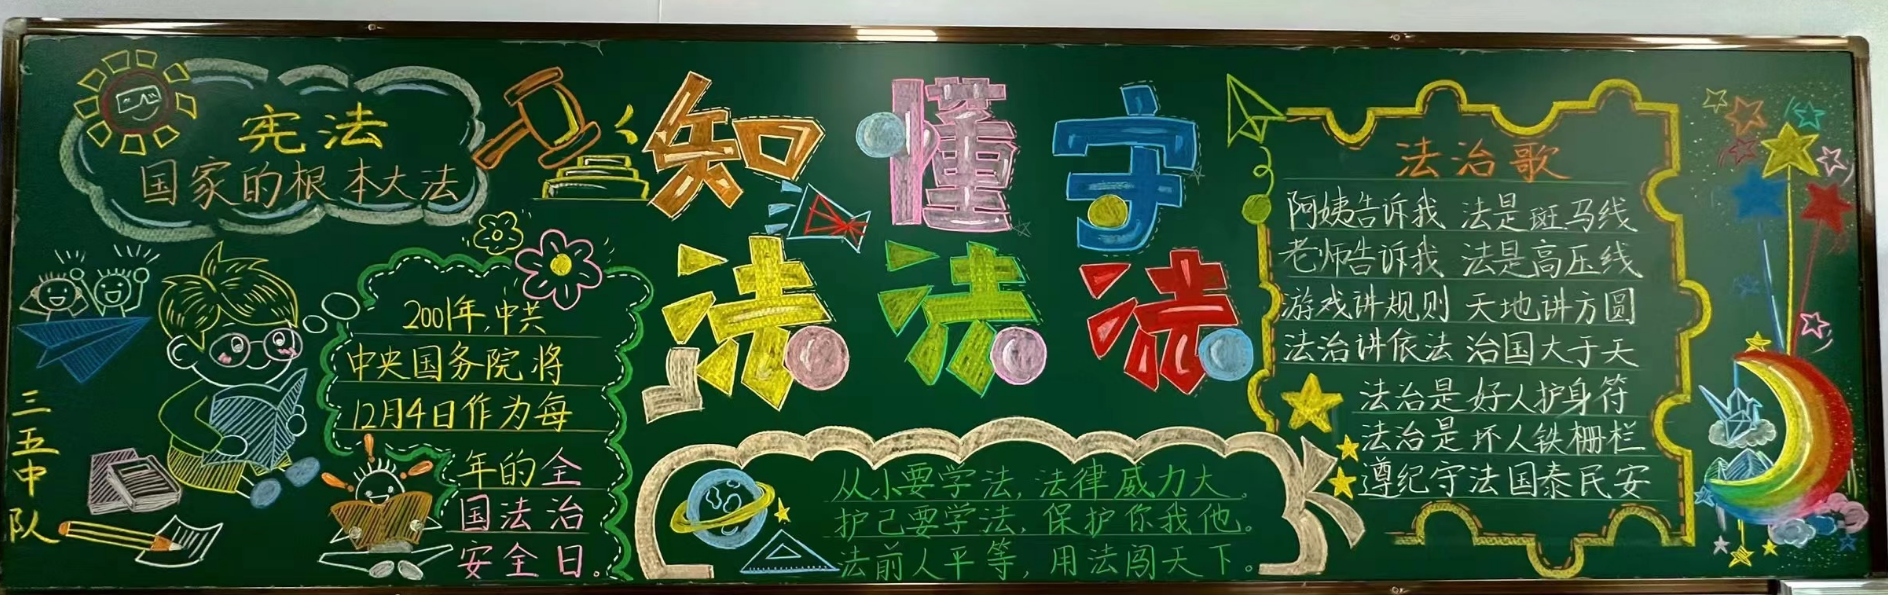 宪法
国家的根本大法
2001年,中共
中央国务院将
12月4日作为每
年的全
国法治
安全日。
三五中队
知懂守
法法法
从小要学法,法律威力大。
护己要学法,保护你我他。
法前人平等,用法闯天下。
法治歌
阿姨告诉我 法是斑马线
老师告诉我 法是高压线
游戏讲规则 天地讲方圆
法治讲依法 治国大于天
法治是好人护身符
法治是坏人铁栅栏
遵纪守法国泰民安